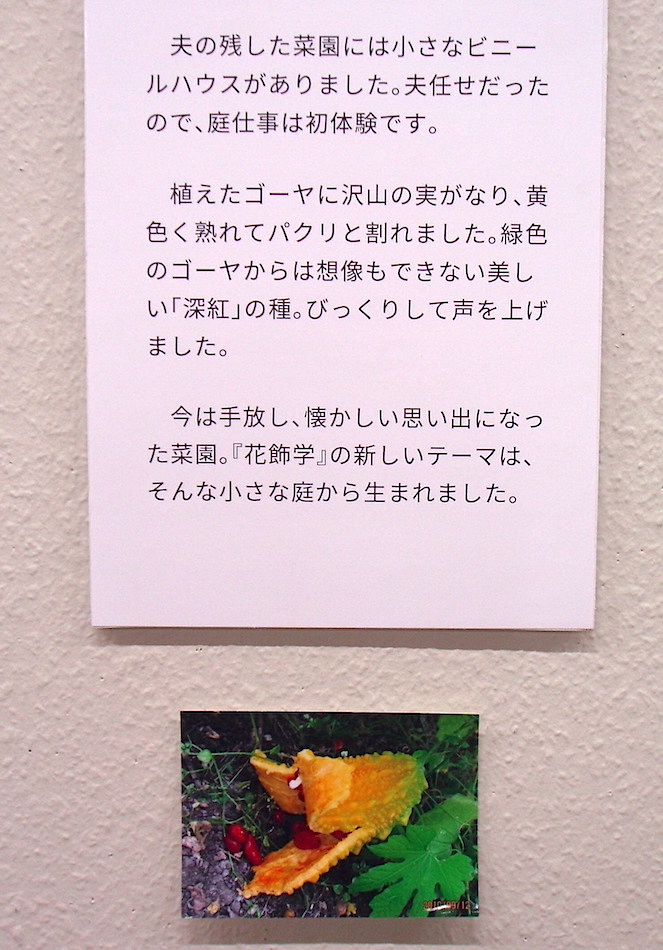 夫の残した菜園には小さなビニー
ルハウスがありました。夫任せだった
ので、庭仕事は初体験です。
植えたゴーヤに沢山の実がなり、黄
色く熟れてパクリと割れました。緑色
のゴーヤからは想像もできない美し
い「深紅」の種。びっくりして声を上げ
ました。
今は手放し、懐かしい思い出になっ
た菜園。『花飾学』の新しいテーマは、
そんな小さな庭から生まれました。